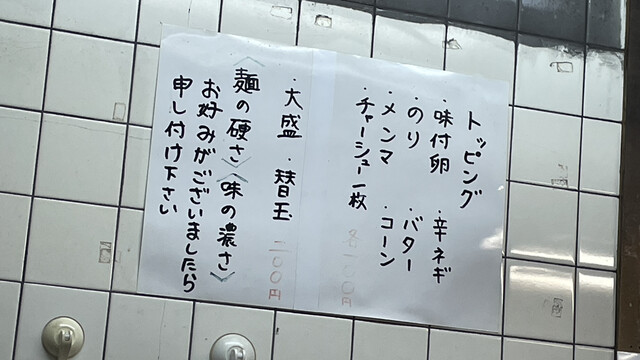 トッピング
・味付卵 ・辛ネギ
・のり ・バター
・メンマ ・コーン
・チャーシュー枚 各一〇〇円
・大盛 ・替玉 二〇〇円
〈麺の硬さ〉〈味の濃さ〉
お好みがございましたら
申し付け下さい